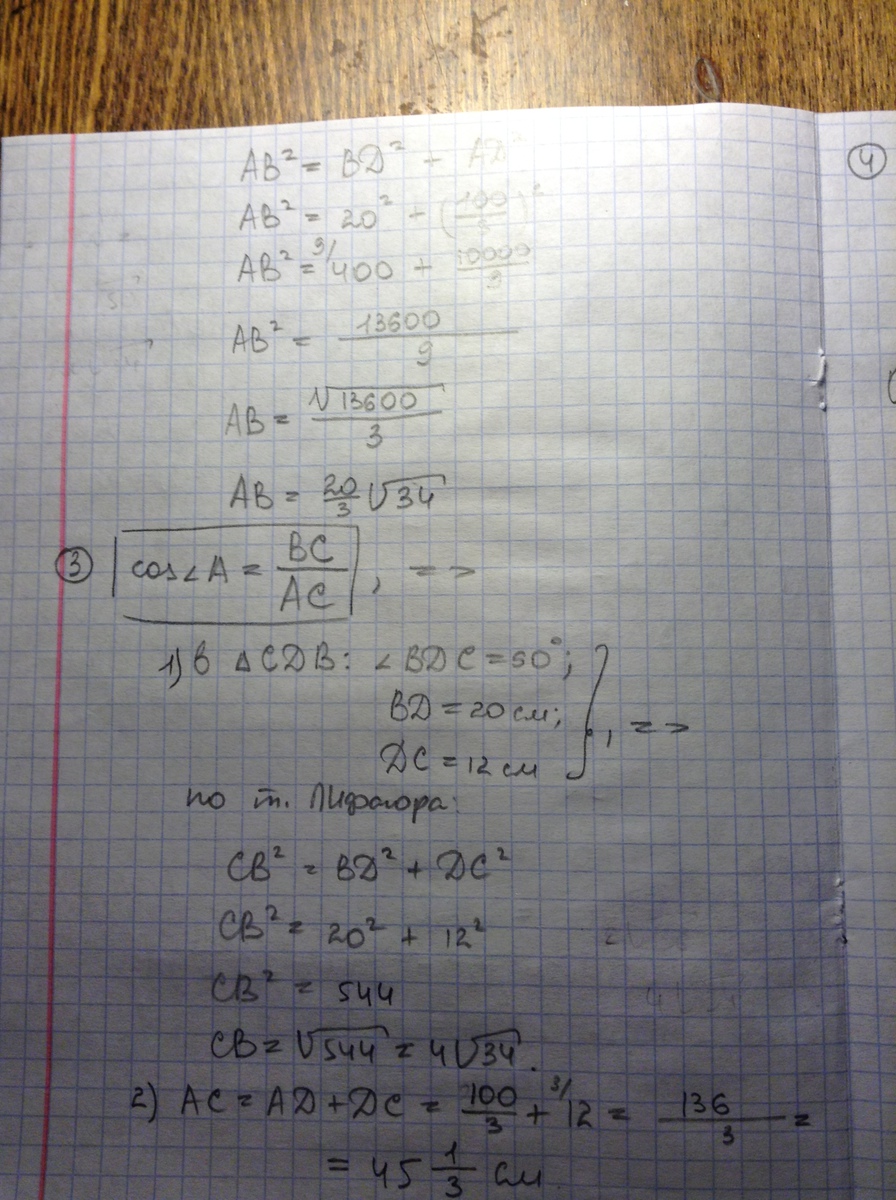 ④
AB² = BD² + AD²
AB² = 20² + (100/3)²
AB² = ³⁹/400 + 10000/9
AB² = 13600/9
AB = √13600/3
AB = 20/3 √34
③ cos∠A = BC/AC, =>
1) В △CDB: ∠BDC = 90°;
BD = 20 см;
DC = 12 см
}, =>
по т. Пифагора:
CB² = BD² + DC²
CB² = 20² + 12²
CB² = 544
CB = √544 = 4√34.
2) AC = AD + DC = 100/3 + ³/12 = 136/3 =
= 45 1/3 см